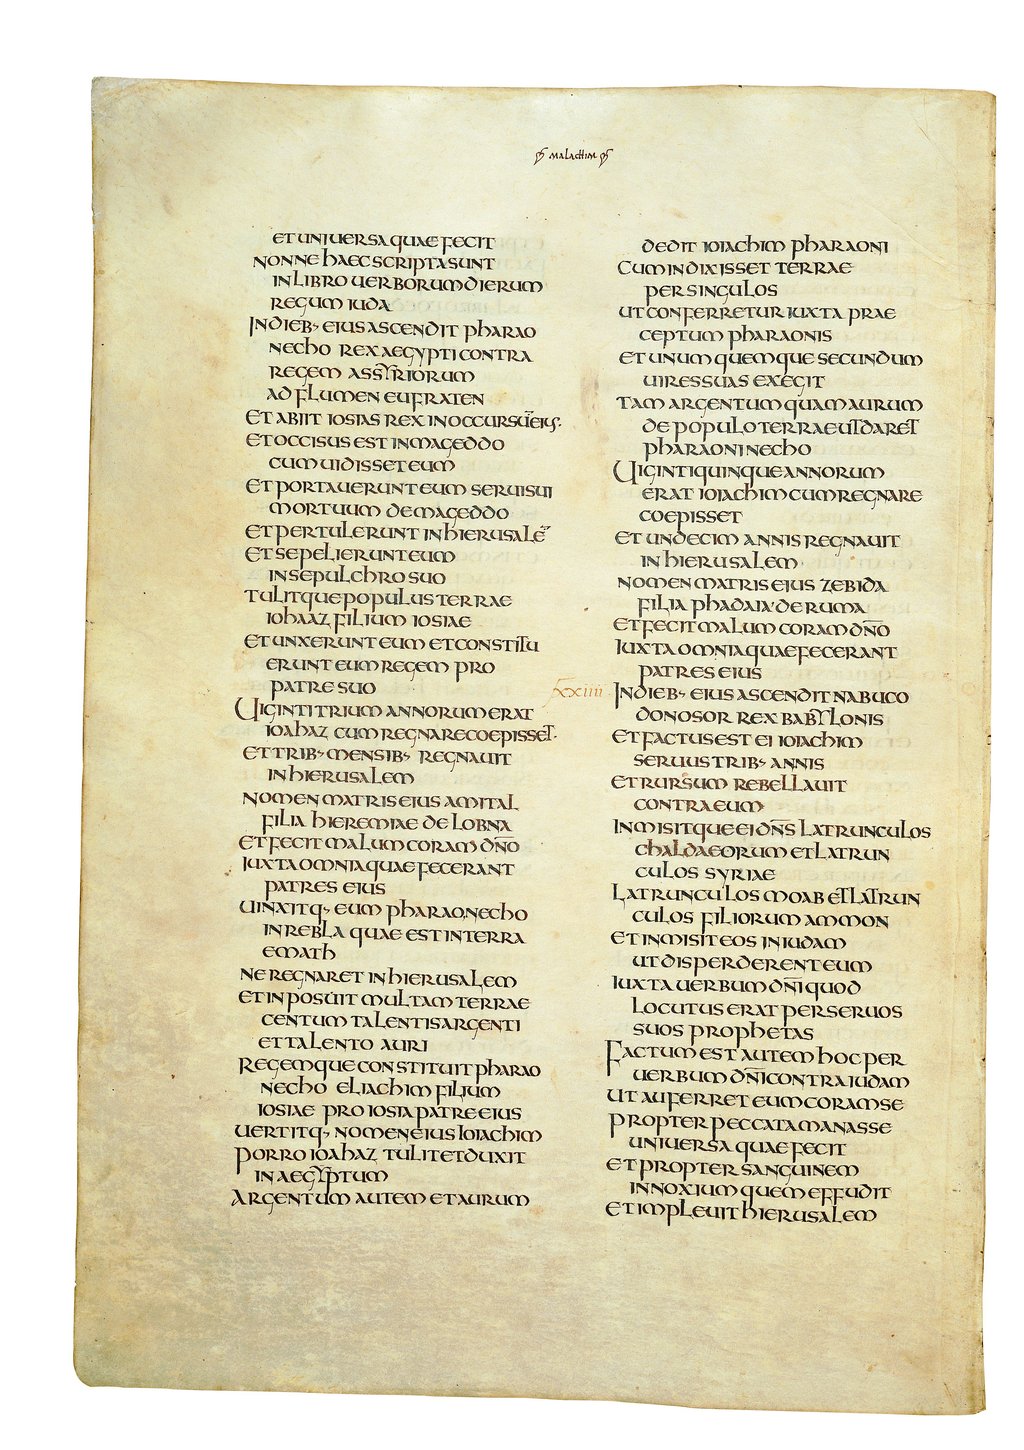 malachim
et universa quae fecit
nonne haec scripta sunt
in libro verborum dierum
regum iuda
In dieb; eius ascendit pharao
necho rex aegypti contra
regem assyriorum
ad flumen eufraten
et abiit iosias rex in occursum eius·
et occisus est in mageddo
cum vidisset eum
et portaverunt eum servi sui
mortuum de mageddo
et pertulerunt in hierusalē
et sepelierunt eum
in sepulchro suo
tulitque populus terrae
iohaaz filium iosiae
et unxerunt eum et constitu
erunt eum regem pro
patre suo
Viginti trium annorum erat
ioahaz cum regnare coepisset·
et trib; mensib; regnavit
in hierusalem
nomen matris eius amital
filia hieremiae de lobna
et fecit malum coram dn̄o
iuxta omnia quae fecerant
patres eius
vinxitq; eum pharao necho
in rebla quae est in terra
emath
ne regnaret in hierusalem
et in posuit multam terrae
centum talentis argenti
et talento auri
Regemque constituit pharao
necho eliachim filium
iosiae pro iosia patre eius
vertitq; nomen eius ioiachim
porro ioahaz tulit et duxit
in aegyptum
Argentum autem et aurum
dedit ioiachim pharaoni
cum indixisset terrae
per singulos
ut conferretur iuxta prae
ceptum pharaonis
et unum quemque secundum
vires suas exegit
tam argentum quam aurum
de populo terrae ut daret
pharaoni necho
Viginti quinque annorum
erat ioiachim cum regnare
coepisset
et undecim annis regnavit
in hierusalem
nomen matris eius zebida
filia phadaia de ruma
et fecit malum coram dn̄o
iuxta omnia quae fecerant
patres eius
xxiiii In dieb; eius ascendit nabuco
donosor rex babylonis
et factus est ei ioiachim
servus trib; annis
et rursum rebellavit
contra eum
inmisitque ei dn̄s latrunculos
chaldaeorum et latrun
culos syriae
latrunculos moab et latrun
culos filiorum ammon
et inmisit eos in iudam
ut disperderent eum
iuxta verbum dn̄i quod
locutus erat per servos
suos prophetas
Factum est autem hoc per
verbum dn̄i contra iudam
ut auferret eum coram se
propter peccata manasse
universa quae fecit
et propter sanguinem
innoxium quem effudit
et implevit hierusalem